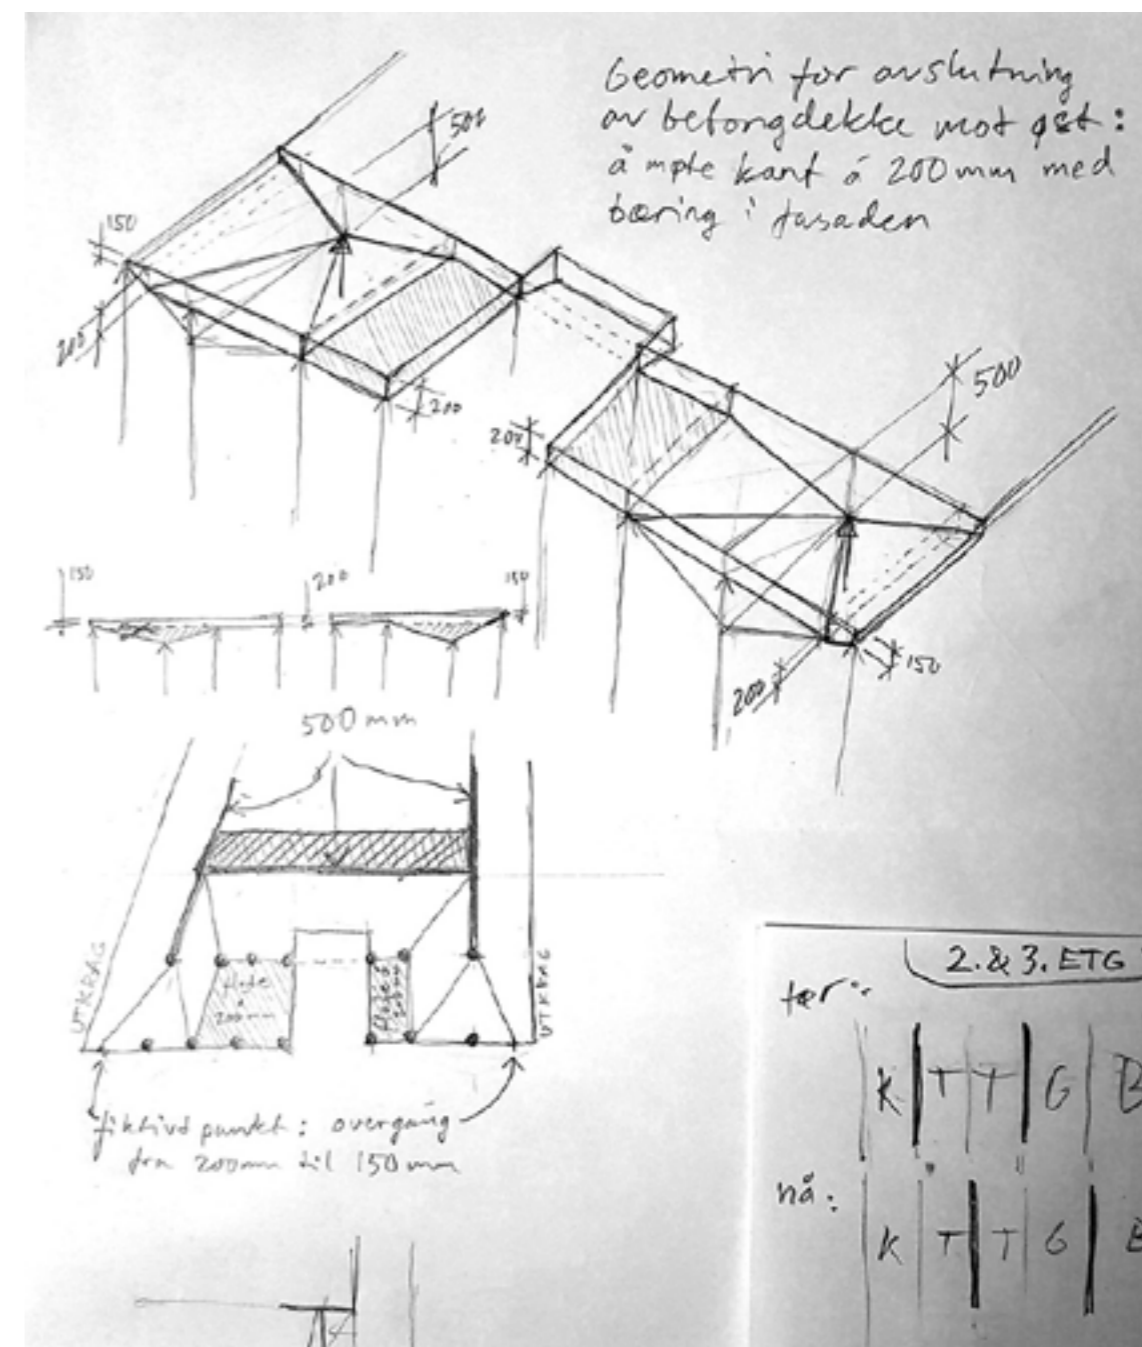 Geometri for avslutning
av betongdekke mot øst:
å møte kant á 200mm med
bæring i fasaden
500
150
200
200
500
200
150
200
150
200
150
500mm
UTKRAG
flate
á
200mm
flate á
200mm
UTKRAG
fiktivt punkt: overgang
fra 200mm til 150mm
2.&3. ETG
før:
K T T G B
nå:
K T T G B